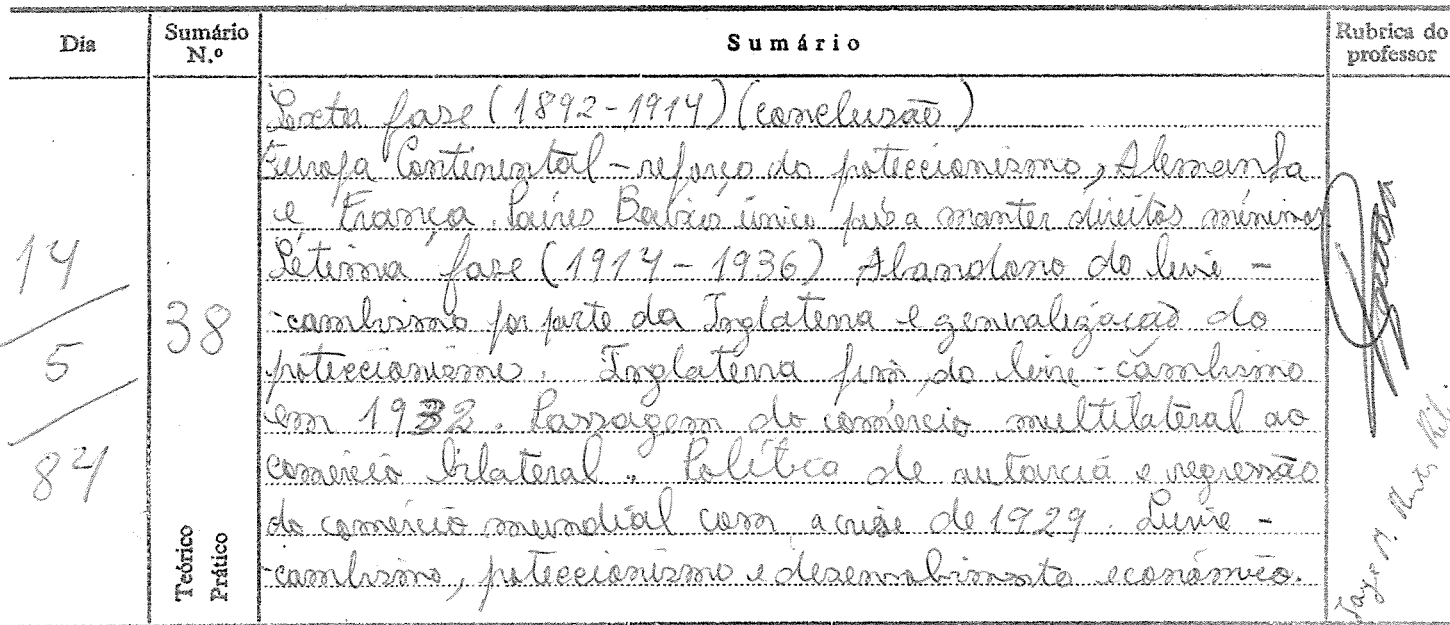 Dia
Sumário N.º
Sumário
Rubrica do professor
14
5
84
38
Teórico
Prático
Sexta fase (1892-1914) (conclusão)
Europa Continental - reforço do proteccionismo, Alemanha
e França. Países Baixos único país a manter direitos mínimos
Sétima fase (1914 - 1936) Abandono do livre -
-cambismo por parte da Inglaterra e generalização do
proteccionismo. Inglaterra fim do livre-cambismo
em 1932. Passagem do comércio multilateral ao
comércio bilateral. Política de autarcia e regressão
do comércio mundial com a crise de 1929. Livre -
-cambismo, proteccionismo e desenvolvimento económico.